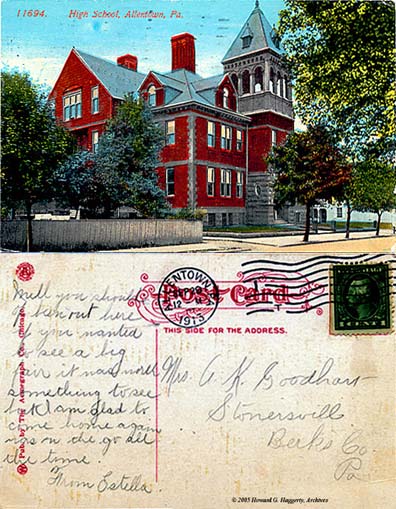 11694. High School, Allentown, Pa.
ALLENTOWN
12 M
1913
Post Card
THIS SIDE FOR THE ADDRESS.
Pub. by The Acmegraph Co., Chicago.
Well you should
of been out here
if you wanted
to see a big
fair it was worth
something to see
but I am glad to
come home again
was on the go all
the time.
From Estella.
Mrs. A. K. Goodhart
Stonersvill
Berks Co.
Pa
CENT
© 2005 Howard G. Haggerty, Archives